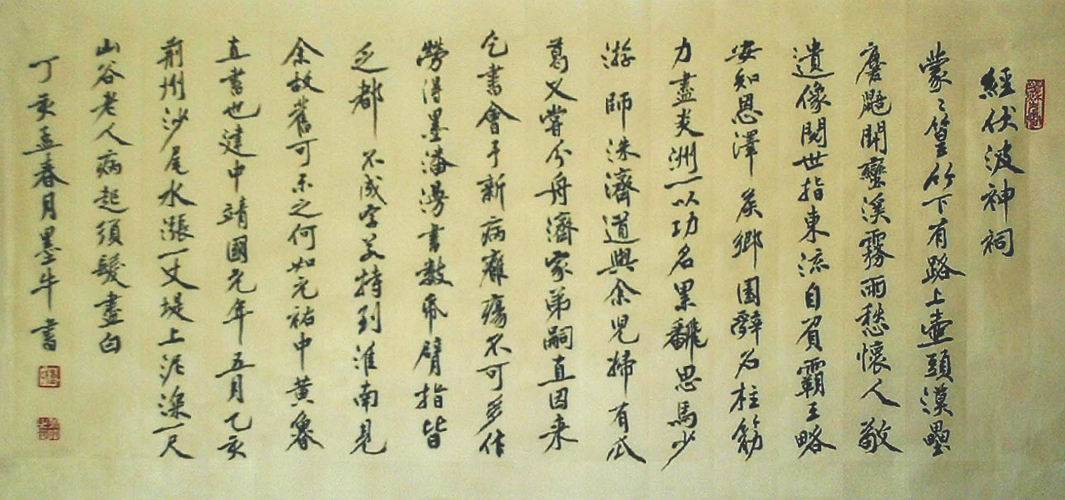 經伏波神祠
蒙〻篁竹下有路上壺頭漢壘
麏鼯鬥蠻溪霧雨愁懷人敬
遺像閱世指東流自負霸王略
安知恩澤矦鄉園辭石柱筋
力盡炎洲一以功名累飜思馬少
游 師洙濟道與余兒婦有瓜
葛又嘗分舟濟家弟嗣直因来
乞書會予新病癰瘍不可多作
勞得墨瀋漫書數帋臂指皆
乏都 不成字若持到淮南見
余故舊可示之何如元祐中黃魯
直書也建中靖國元年五月乙亥
荊州沙尾水漲一丈堤上泥深一尺
山谷老人病起須髮盡白
丁亥孟春月墨牛書